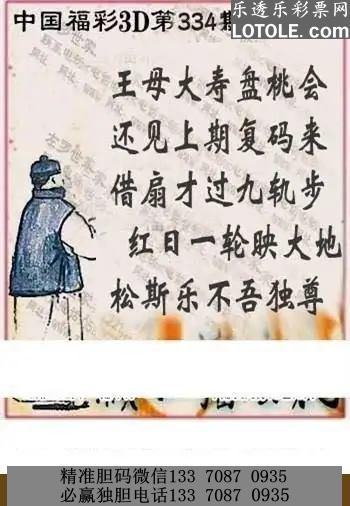 中国福彩3D第334期
乐透乐彩票网
LOTOLE.COM
王母大寿盘桃会
还见上期复码来
借扇才过九轨步
红日一轮映大地
松斯乐不吾独尊
精准胆码微信133 7087 0935
必赢独胆电话133 7087 0935